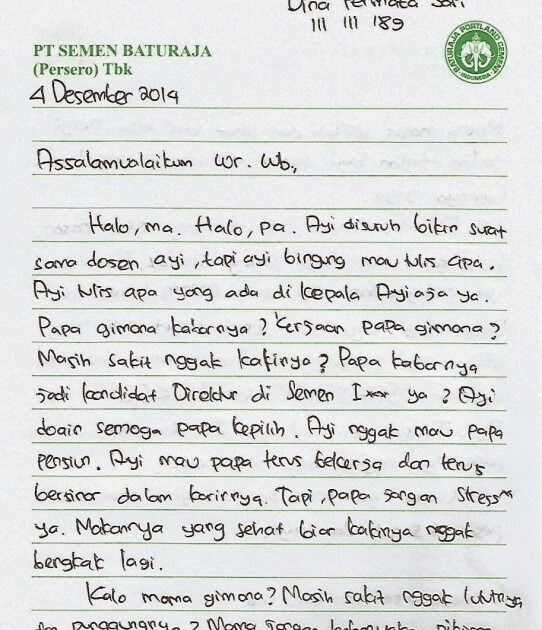 Dina Permata Sari
111 111 189
PT SEMEN BATURAJA
(Persero) Tbk
BATURAJA PORTLAND CEMENT
INDONESIA
4 Desember 2014
Assalamualaikum Wr. Wb.,
Halo, ma. Halo, pa. Ayi disuruh bikin surat
sama dosen ayi, tapi ayi bingung mau tulis apa.
Ayi tulis apa yang ada di kepala Ayi aja ya.
Papa gimana kabarnya? Kerjaan papa gimana?
Masih sakit nggak kakinya? Papa kabarnya
jadi kandidat Direktur di Semen I*** ya? Ayi
doain semoga papa kepilih. Ayi nggak mau papa
pensiun. Ayi mau papa terus bekerja dan terus
bersinar dalam karirnya. Tapi, papa jangan stress"
ya. Makannya yang sehat biar kakinya nggak
bengkak lagi.
Kalo mama gimana? Masih sakit nggak lututnya
dan punggungnya? Mama jangan